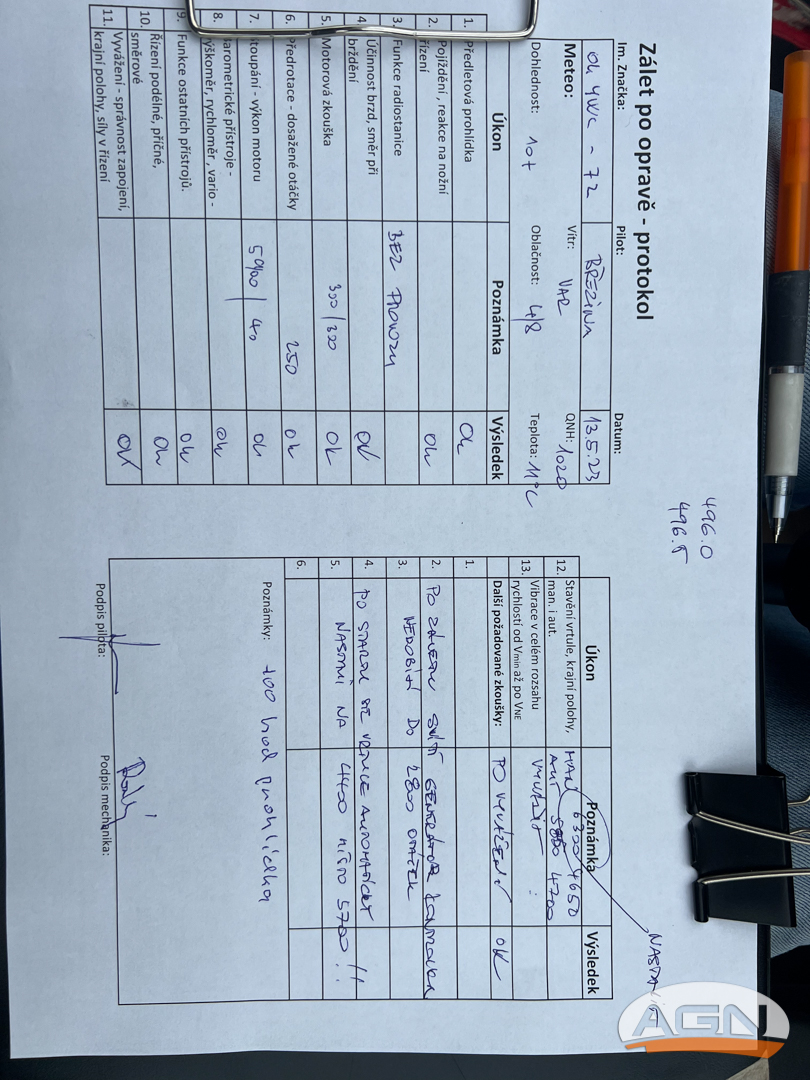 Zálet po opravě - protokol
496.0
496.5
Im. Značka: Pilot: Datum:
OK YWC - 72 BŘEZINA 13.5.23
Meteo: Vítr: VAR QNH: 1020
Dohlednost: 10+ Oblačnost: 4/8 Teplota: 11°C
Úkon Poznámka Výsledek
1. Předletová prohlídka OK
2. Pojíždění , reakce na nožní
řízení OK
3. Funkce radiostanice BEZ PROVOZU
4. Účinnost brzd, směr při
brždění OK
5. Motorová zkouška 300/300 OK
6. Předrotace - dosažené otáčky 250 OK
7. Stoupání - výkon motoru 5900/40 OK
8. Barometrické přístroje -
výškoměr, rychloměr , vario - OK
9. Funkce ostatních přístrojů. OK
10. Řízení podélné, příčné,
směrové OK
11. Vyvážení - správnost zapojení,
krajní polohy, síly v řízení OK
Úkon Poznámka Výsledek
12. Stavění vrtule, krajní polohy,
man. i aut.
MAN 6300 4650
AUT 4700
13. Vibrace v celém rozsahu
rychlostí od Vmin až po VNE
VYVÁŽIT !
Další požadované zkoušky: PO VYVÁŽENÍ OK
1.
2. PO SVÍTÍ GENERÁTOR KONTROLKA
3. NEDOBÍJÍ DO 2800 OTÁČEK
4. PO STARTU SE VRTULE AUTOMATICKY
5. NASTAVÍ NA 4400 MÍSTO 5700 !!
6.
Poznámky: 100 hod prohlídka
Podpis pilota: Podpis mechanika:
AGN